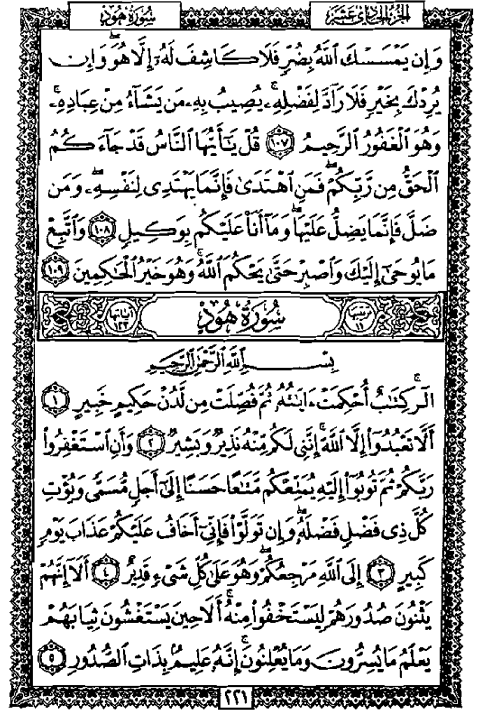 الجزء الحادي عشر
سورة هود
وَإِن يَمْسَسْكَ ٱللَّهُ بِضُرٍّ فَلَا كَاشِفَ لَهُۥٓ إِلَّا هُوَ ۖ وَإِن
يُرِدْكَ بِخَيْرٍ فَلَا رَآدَّ لِفَضْلِهِۦ ۚ يُصِيبُ بِهِۦ مَن يَشَآءُ مِنْ عِبَادِهِۦ ۚ
وَهُوَ ٱلْغَفُورُ ٱلرَّحِيمُ ١٠٧ قُلْ يَٰٓأَيُّهَا ٱلنَّاسُ قَدْ جَآءَكُمُ
ٱلْحَقُّ مِن رَّبِّكُمْ ۖ فَمَنِ ٱهْتَدَىٰ فَإِنَّمَا يَهْتَدِى لِنَفْسِهِۦ ۖ وَمَن
ضَلَّ فَإِنَّمَا يَضِلُّ عَلَيْهَا ۖ وَمَآ أَنَا۠ عَلَيْكُم بِوَكِيلٍ ١٠٨ وَٱتَّبِعْ
مَا يُوحَىٰٓ إِلَيْكَ وَٱصْبِرْ حَتَّىٰ يَحْكُمَ ٱللَّهُ ۚ وَهُوَ خَيْرُ ٱلْحَٰكِمِينَ ١٠٩
ترتيبها ١١ سُورَةُ هُودٍ آياتها ١٢٣
بِسْمِ ٱللَّهِ ٱلرَّحْمَٰنِ ٱلرَّحِيمِ
الٓر ۚ كِتَٰبٌ أُحْكِمَتْ ءَايَٰتُهُۥ ثُمَّ فُصِّلَتْ مِن لَّدُنْ حَكِيمٍ خَبِيرٍ ١
أَلَّا تَعْبُدُوٓا۟ إِلَّا ٱللَّهَ ۚ إِنَّنِى لَكُم مِّنْهُ نَذِيرٌ وَبَشِيرٌ ٢ وَأَنِ ٱسْتَغْفِرُوا۟
رَبَّكُمْ ثُمَّ تُوبُوٓا۟ إِلَيْهِ يُمَتِّعْكُم مَّتَٰعًا حَسَنًا إِلَىٰٓ أَجَلٍ مُّسَمًّى وَيُؤْتِ
كُلَّ ذِى فَضْلٍ فَضْلَهُۥ ۖ وَإِن تَوَلَّوْا۟ فَإِنِّىٓ أَخَافُ عَلَيْكُمْ عَذَابَ يَوْمٍ
كَبِيرٍ ٣ إِلَى ٱللَّهِ مَرْجِعُكُمْ ۖ وَهُوَ عَلَىٰ كُلِّ شَىْءٍ قَدِيرٌ ٤ أَلَآ إِنَّهُمْ
يَثْنُونَ صُدُورَهُمْ لِيَسْتَخْفُوا۟ مِنْهُ ۚ أَلَا حِينَ يَسْتَغْشُونَ ثِيَابَهُمْ
يَعْلَمُ مَا يُسِرُّونَ وَمَا يُعْلِنُونَ ۚ إِنَّهُۥ عَلِيمٌۢ بِذَاتِ ٱلصُّدُورِ ٥
٢٢١